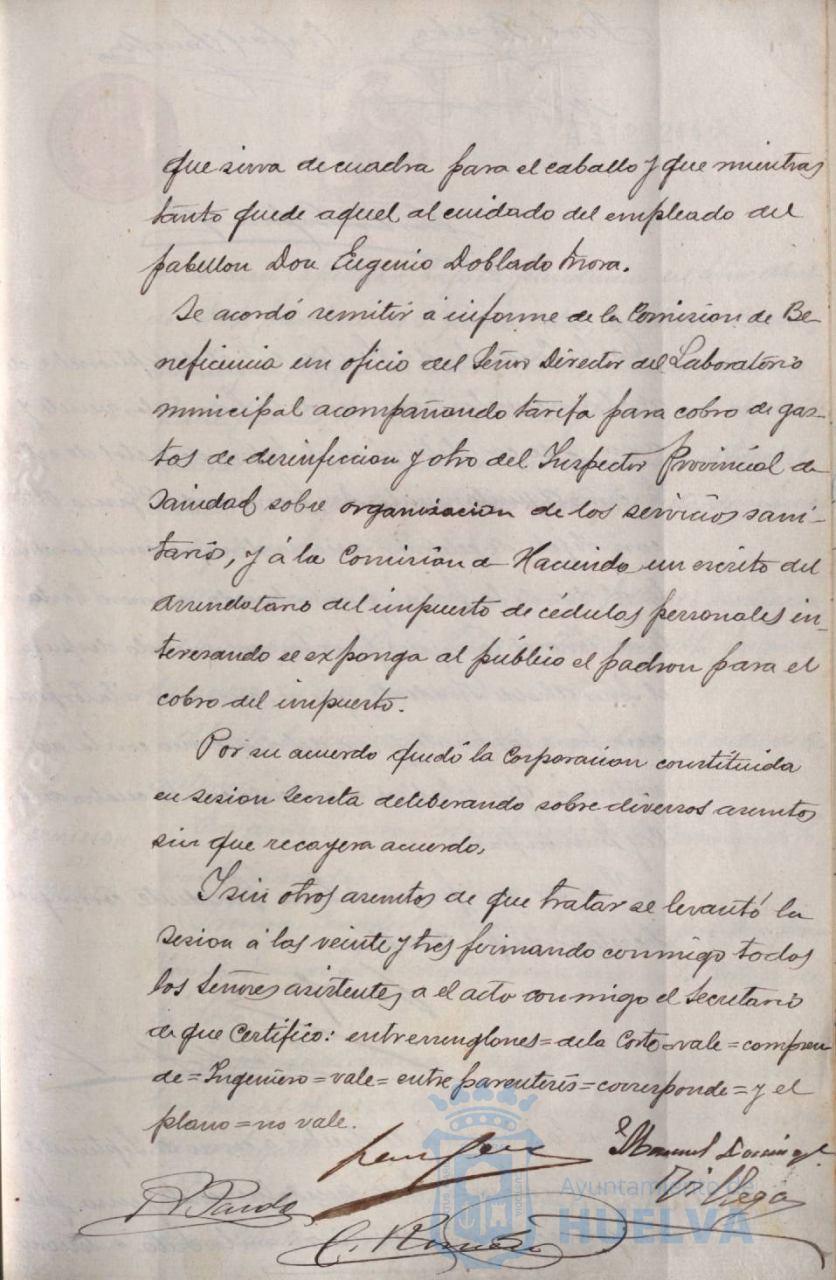 que sirva de cuadra para el caballo y que mientras
tanto quede aquel al cuidado del empleado del
pabellon Don Eugenio Doblado Mora.
Se acordó remitir á informe de la Comision de Be-
neficencia un oficio del Señor Director del Laboratorio
municipal acompañando tarifa para cobro de gas-
tos de desinfeccion y otro del Inspector Provincial de
Sanidad sobre organizacion de los servicios sani-
tarios, y á la Comisión de Hacienda un escrito del
arrendatario del impuesto de cédulas personales in-
teresando se exponga al público el padron para el
cobro del impuesto.
Por su acuerdo quedó la Corporacion constituida
en sesion secreta deliberando sobre diversos asuntos
sin que recayera acuerdo.
Y sin otros asuntos de que tratar se levantó la
sesion á las veinte y tres firmando conmigo todos
los Señores asistentes a el acto conmigo el Secretario
de que Certifico: entrerrenglones=de la Corte=vale=compren
de=Ingeniero=vale=entre parentesis=corresponde=y el
plano=no vale.
Manuel Domingo
R. Pardo
Villega
Ayuntamiento de
HUELVA
C. Romero